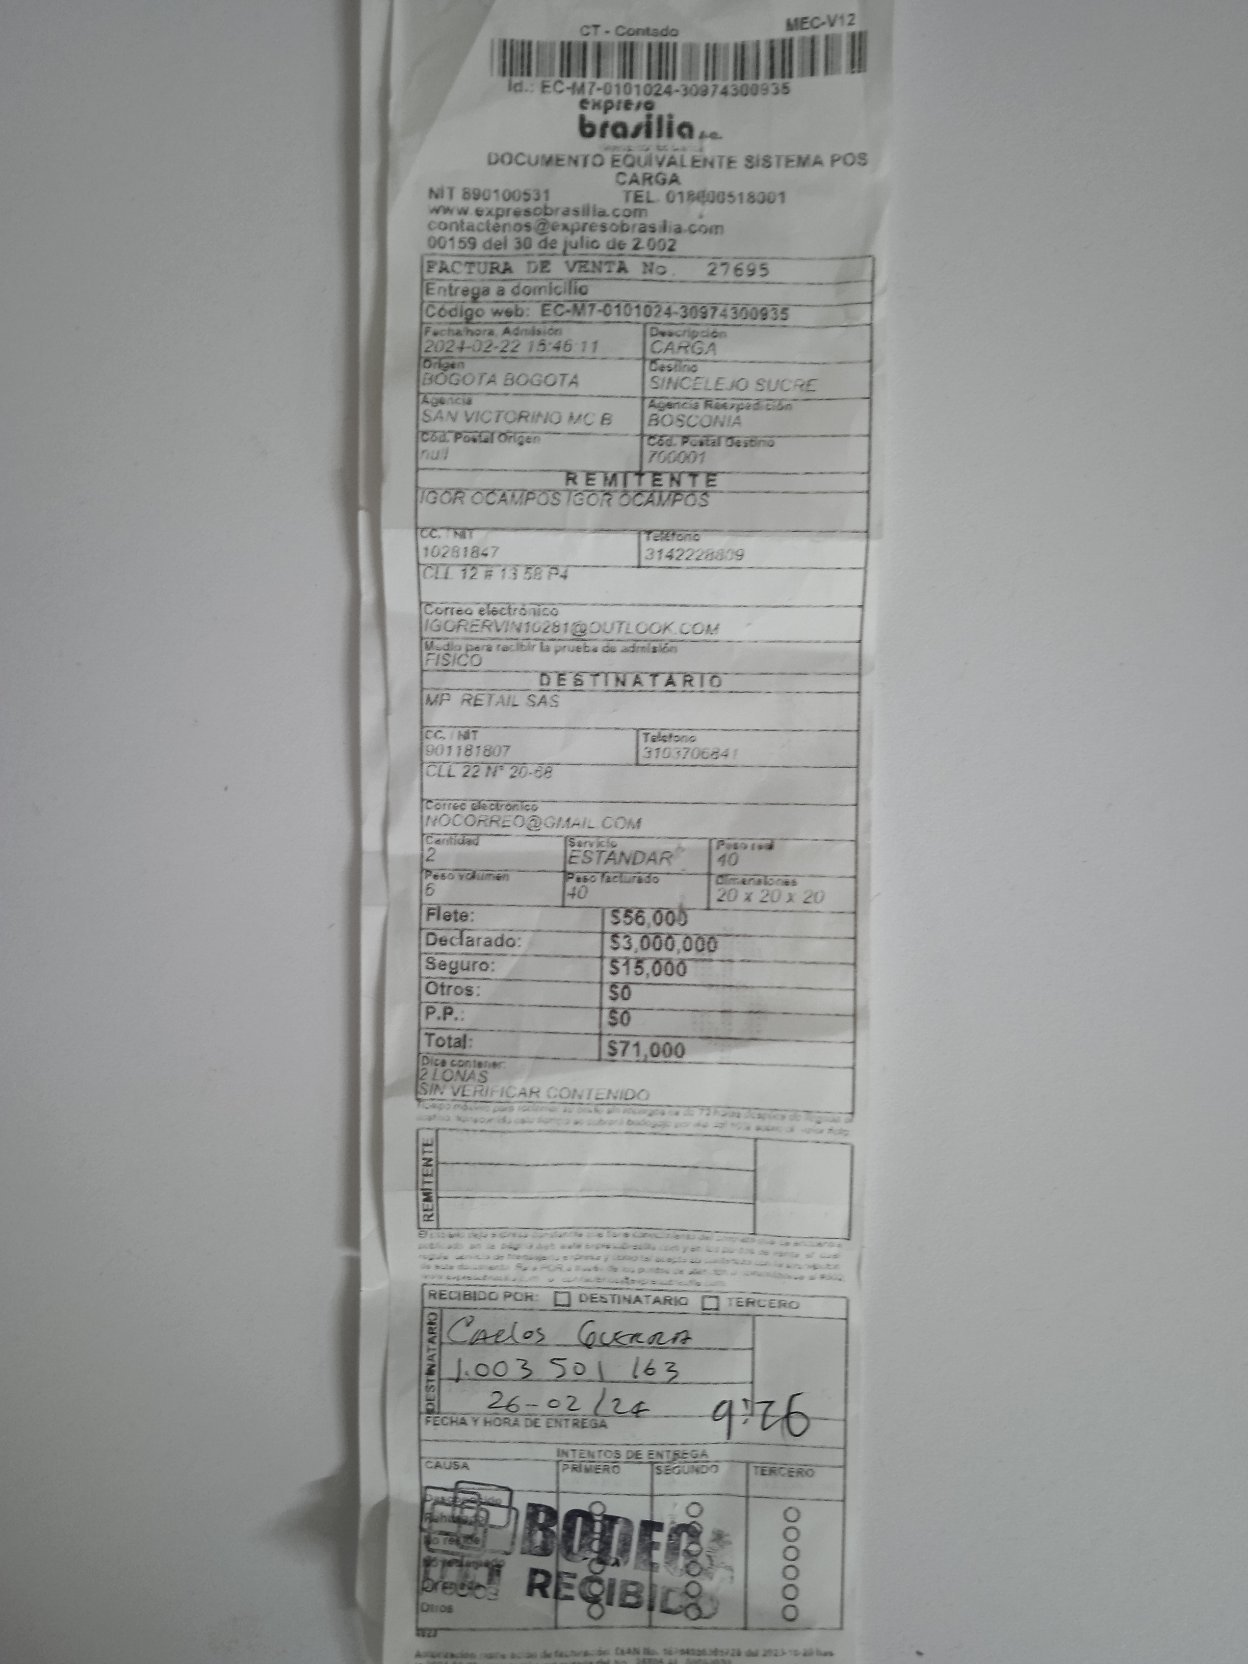 CT - Contado MEC-V12
Id.: EC-M7-0101024-30974300935
expreso
brasilia s.a.
DOCUMENTO EQUIVALENTE SISTEMA POS
CARGA
NIT 890100531 TEL. 018000518001
www.expresobrasilia.com
contactenos@expresobrasilia.com
00159 del 30 de julio de 2.002
FACTURA DE VENTA No. 27695
Entrega a domicilio
Código web: EC-M7-0101024-30974300935
Fecha/hora. Admisión Descripción
2024-02-22 15:46:11 CARGA
Origen Destino
BOGOTA BOGOTA SINCELEJO SUCRE
Agencia Agencia Reexpedición
SAN VICTORINO MC B BOSCONIA
Cód. Postal Origen Cód. Postal Destino
null 700001
REMITENTE
IGOR OCAMPOS IGOR OCAMPOS
CC. / NIT Teléfono
10281847 3142228809
CLL 12 # 13 58 P4
Correo electrónico
IGORERVIN10281@OUTLOOK.COM
Medio para recibir la prueba de admisión
FISICO
DESTINATARIO
MP RETAIL SAS
CC. / NIT Teléfono
901181807 3103706841
CLL 22 N° 20-68
Correo electrónico
NOCORREO@GMAIL.COM
Cantidad Servicio Peso real
2 ESTANDAR 40
Peso volumen Peso facturado Dimensiones
6 40 20 x 20 x 20
Flete: $56,000
Declarado: $3,000,000
Seguro: $15,000
Otros: $0
P.P.: $0
Total: $71,000
Dice contener:
2 LONAS
SIN VERIFICAR CONTENIDO
REMITENTE
RECIBIDO POR: DESTINATARIO TERCERO
DESTINATARIO
Carlos Guerra
1.003 501 163
26-02/24 9:26
FECHA Y HORA DE ENTREGA
INTENTOS DE ENTREGA
CAUSA PRIMERO SEGUNDO TERCERO
Desconocido
Rehusado
No reside
No reclamado
Otros
BODEG
RECIBID